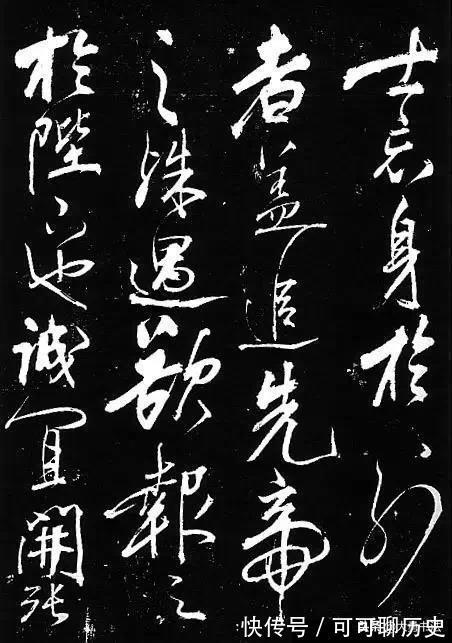 士忘身於外
者盖追先帝
之殊遇欲報之
於陛下也誠宜開张
快传号/可可聊历史